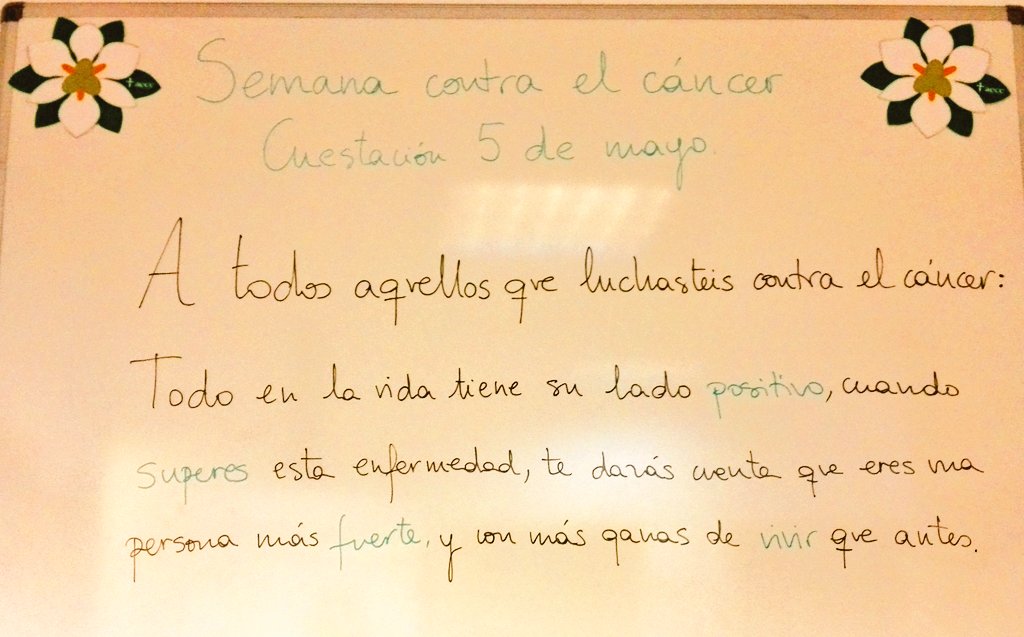 Semana contra el cáncer
Cuestación 5 de mayo.
aecc
aecc
A todos aquellos que luchasteis contra el cáncer:
Todo en la vida tiene su lado positivo, cuando
superes esta enfermedad, te darás cuenta que eres una
persona más fuerte, y con más ganas de vivir que antes.